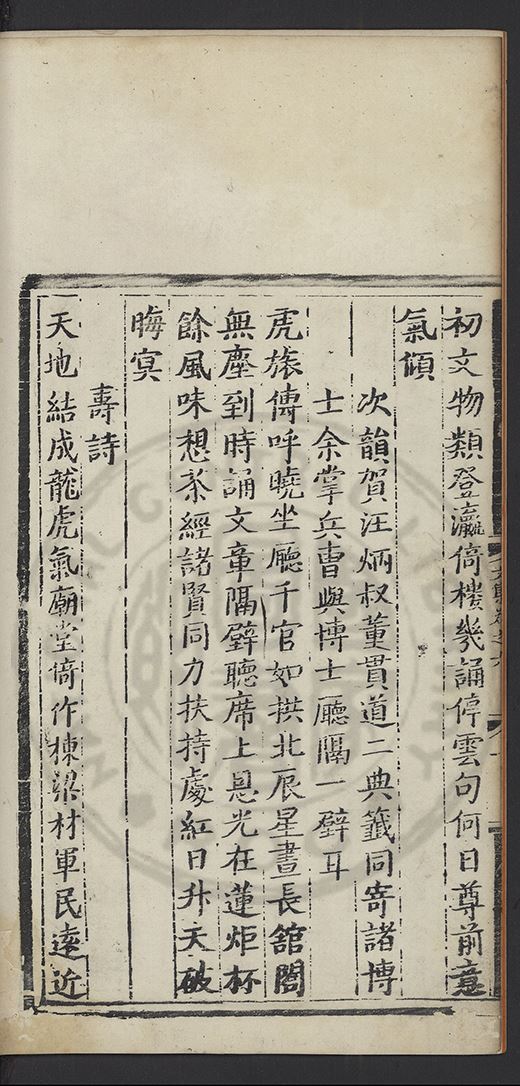 初文物類登瀛倚樓幾誦停雲句何日尊前意
氣傾
次韻賀汪炳叔董貫道二典籤同寄諸博
士余掌兵曹與博士廳隔一壁耳
虎旅傳呼曉坐廳千官如拱北辰星晝長舘閣
無塵到時誦文章隔壁聽席上恩光在蓮炬杯
餘風味想茶經諸賢同力扶持處紅日升天破
晦冥
壽詩
天地結成龍虎氣廟堂倚作棟梁材軍民遠近